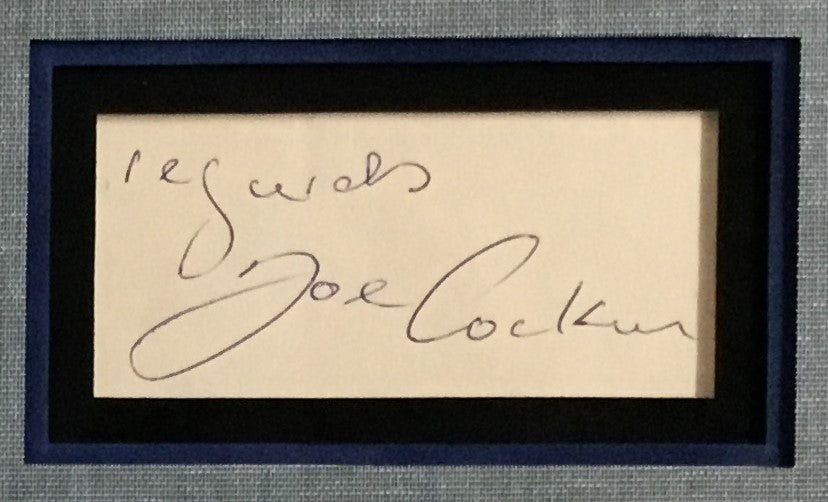 regards
Joe Cocker